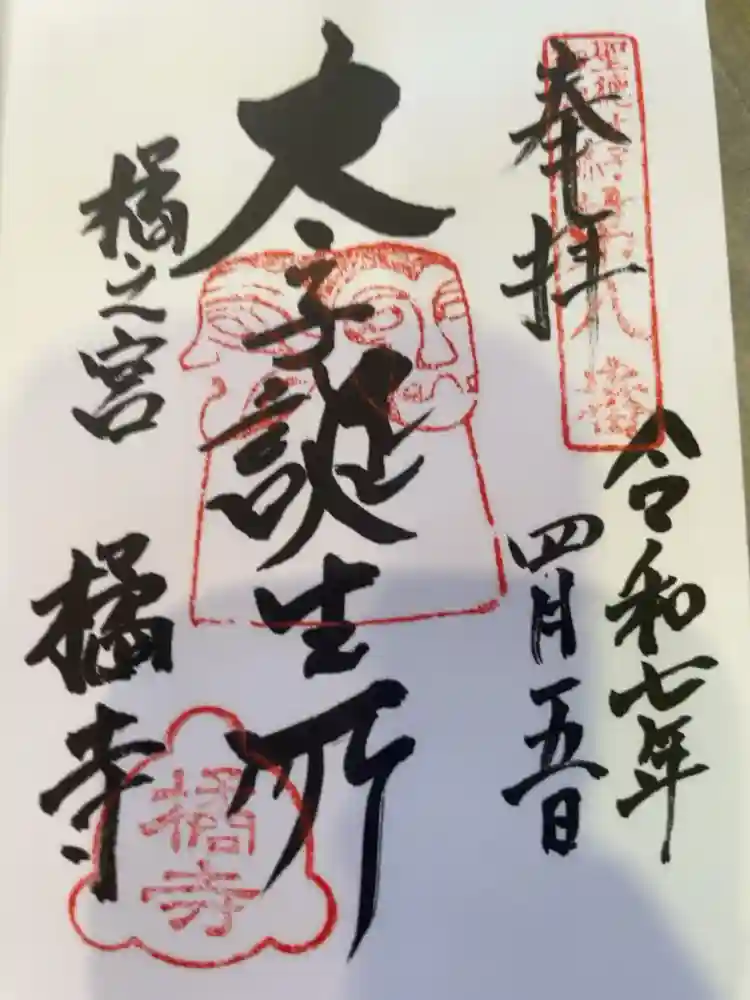 奉拝
令和七年
四月五日
太子誕生所
橘之宮
橘寺
橘寺